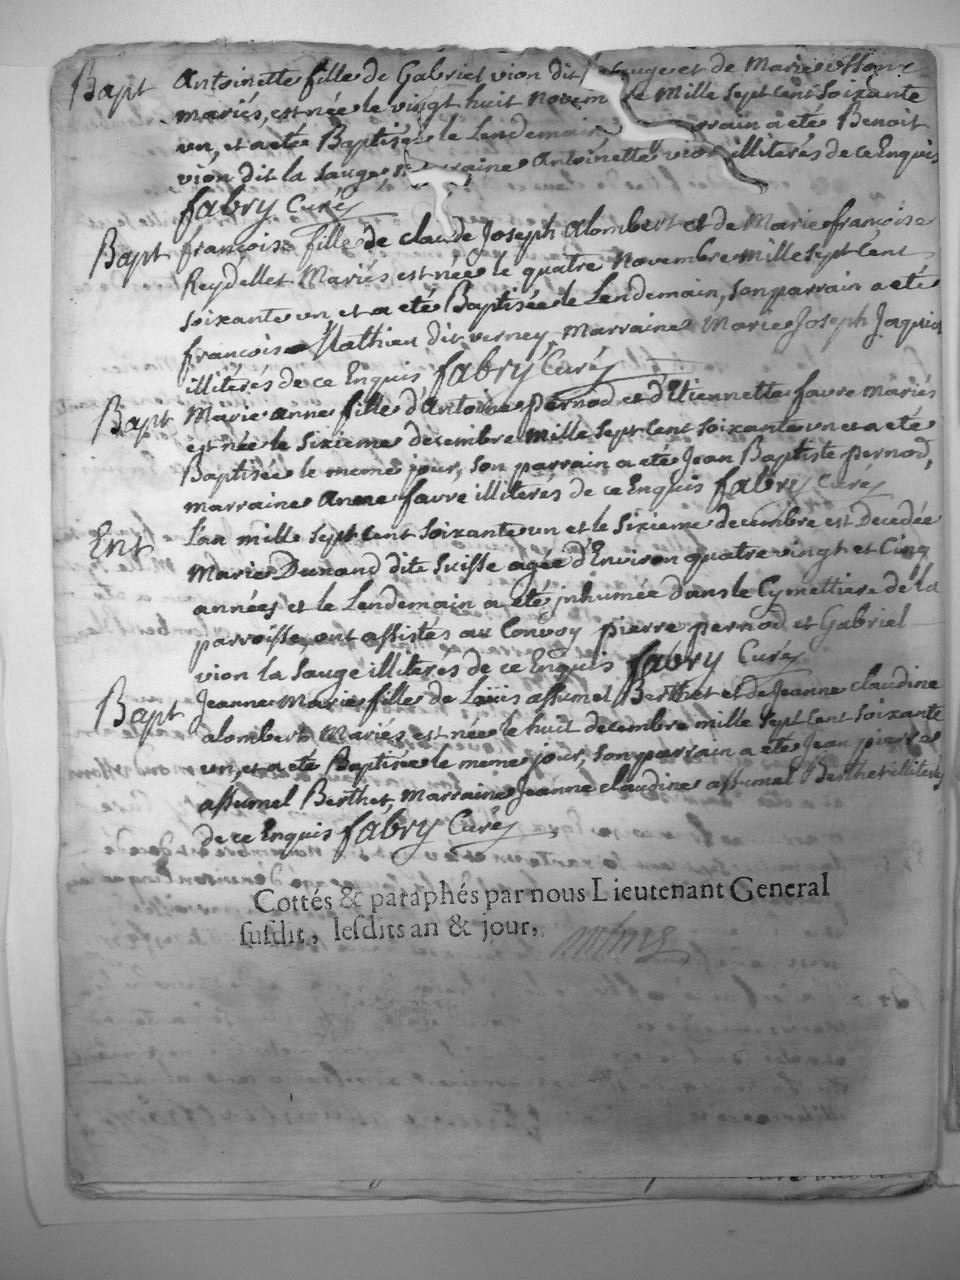 Bapt Antoinette fille de Gabriel vion dit Sauge et de Marie
mariés, est née le vingt huit Novembre Mille Sept Cent Soixante
un, et a eté Baptisée le Lendemain parrain a eté Benoit
vion dit la Sauge marraine Antoinette vion illiterés de ce Enquis
fabry Curé
Bapt françoise fille de claude Joseph alombert et de Marie françoise
Reydellet Mariés est née le quatre Novembre Mille Sept Cent
soixante un et a eté Baptisée le Lendemain, son parrain a eté
françois Mathieu dit verney, Marraine Marie Joseph Jaquiot
illiterés de ce Enquis fabry Curé
Bapt Marie anne fille d'Antoine pernod et d'Etiennette favre mariés
est née le Sixieme decembre Mille Sept Cent Soixante un et a eté
Baptisée le meme jour, Son parrain a eté Jean Baptiste pernod,
marraine Anne favre illiterés de ce Enquis fabry Curé
Ent L'an mille Sept Cent Soixante un et le Sixieme decembre est Decedée
Marie Dunand dite Suisse agée d'Environ quatre vingt et Cinq
années et le Lendemain a eté jnhumée dans le Cymettiere de la
parroisse, ont assistés au Convoy pierre pernod et Gabriel
vion la Sauge illiteres de ce Enquis fabry Curé
Bapt Jeanne Marie fille de Loüis assumel Berthet et de Jeanne claudine
alombert Mariés est née le huit decembre mille Sept Cent Soixante
un, et a eté Baptisée le meme jour, Son parrain a eté Jean pierre
assumel Berthet, Marraine Jeanne claudine assumel Berthet illiterés
de ce Enquis fabry Curé
Cottés & paraphés par nous Lieutenant General
susdit, lesdits an & jour,